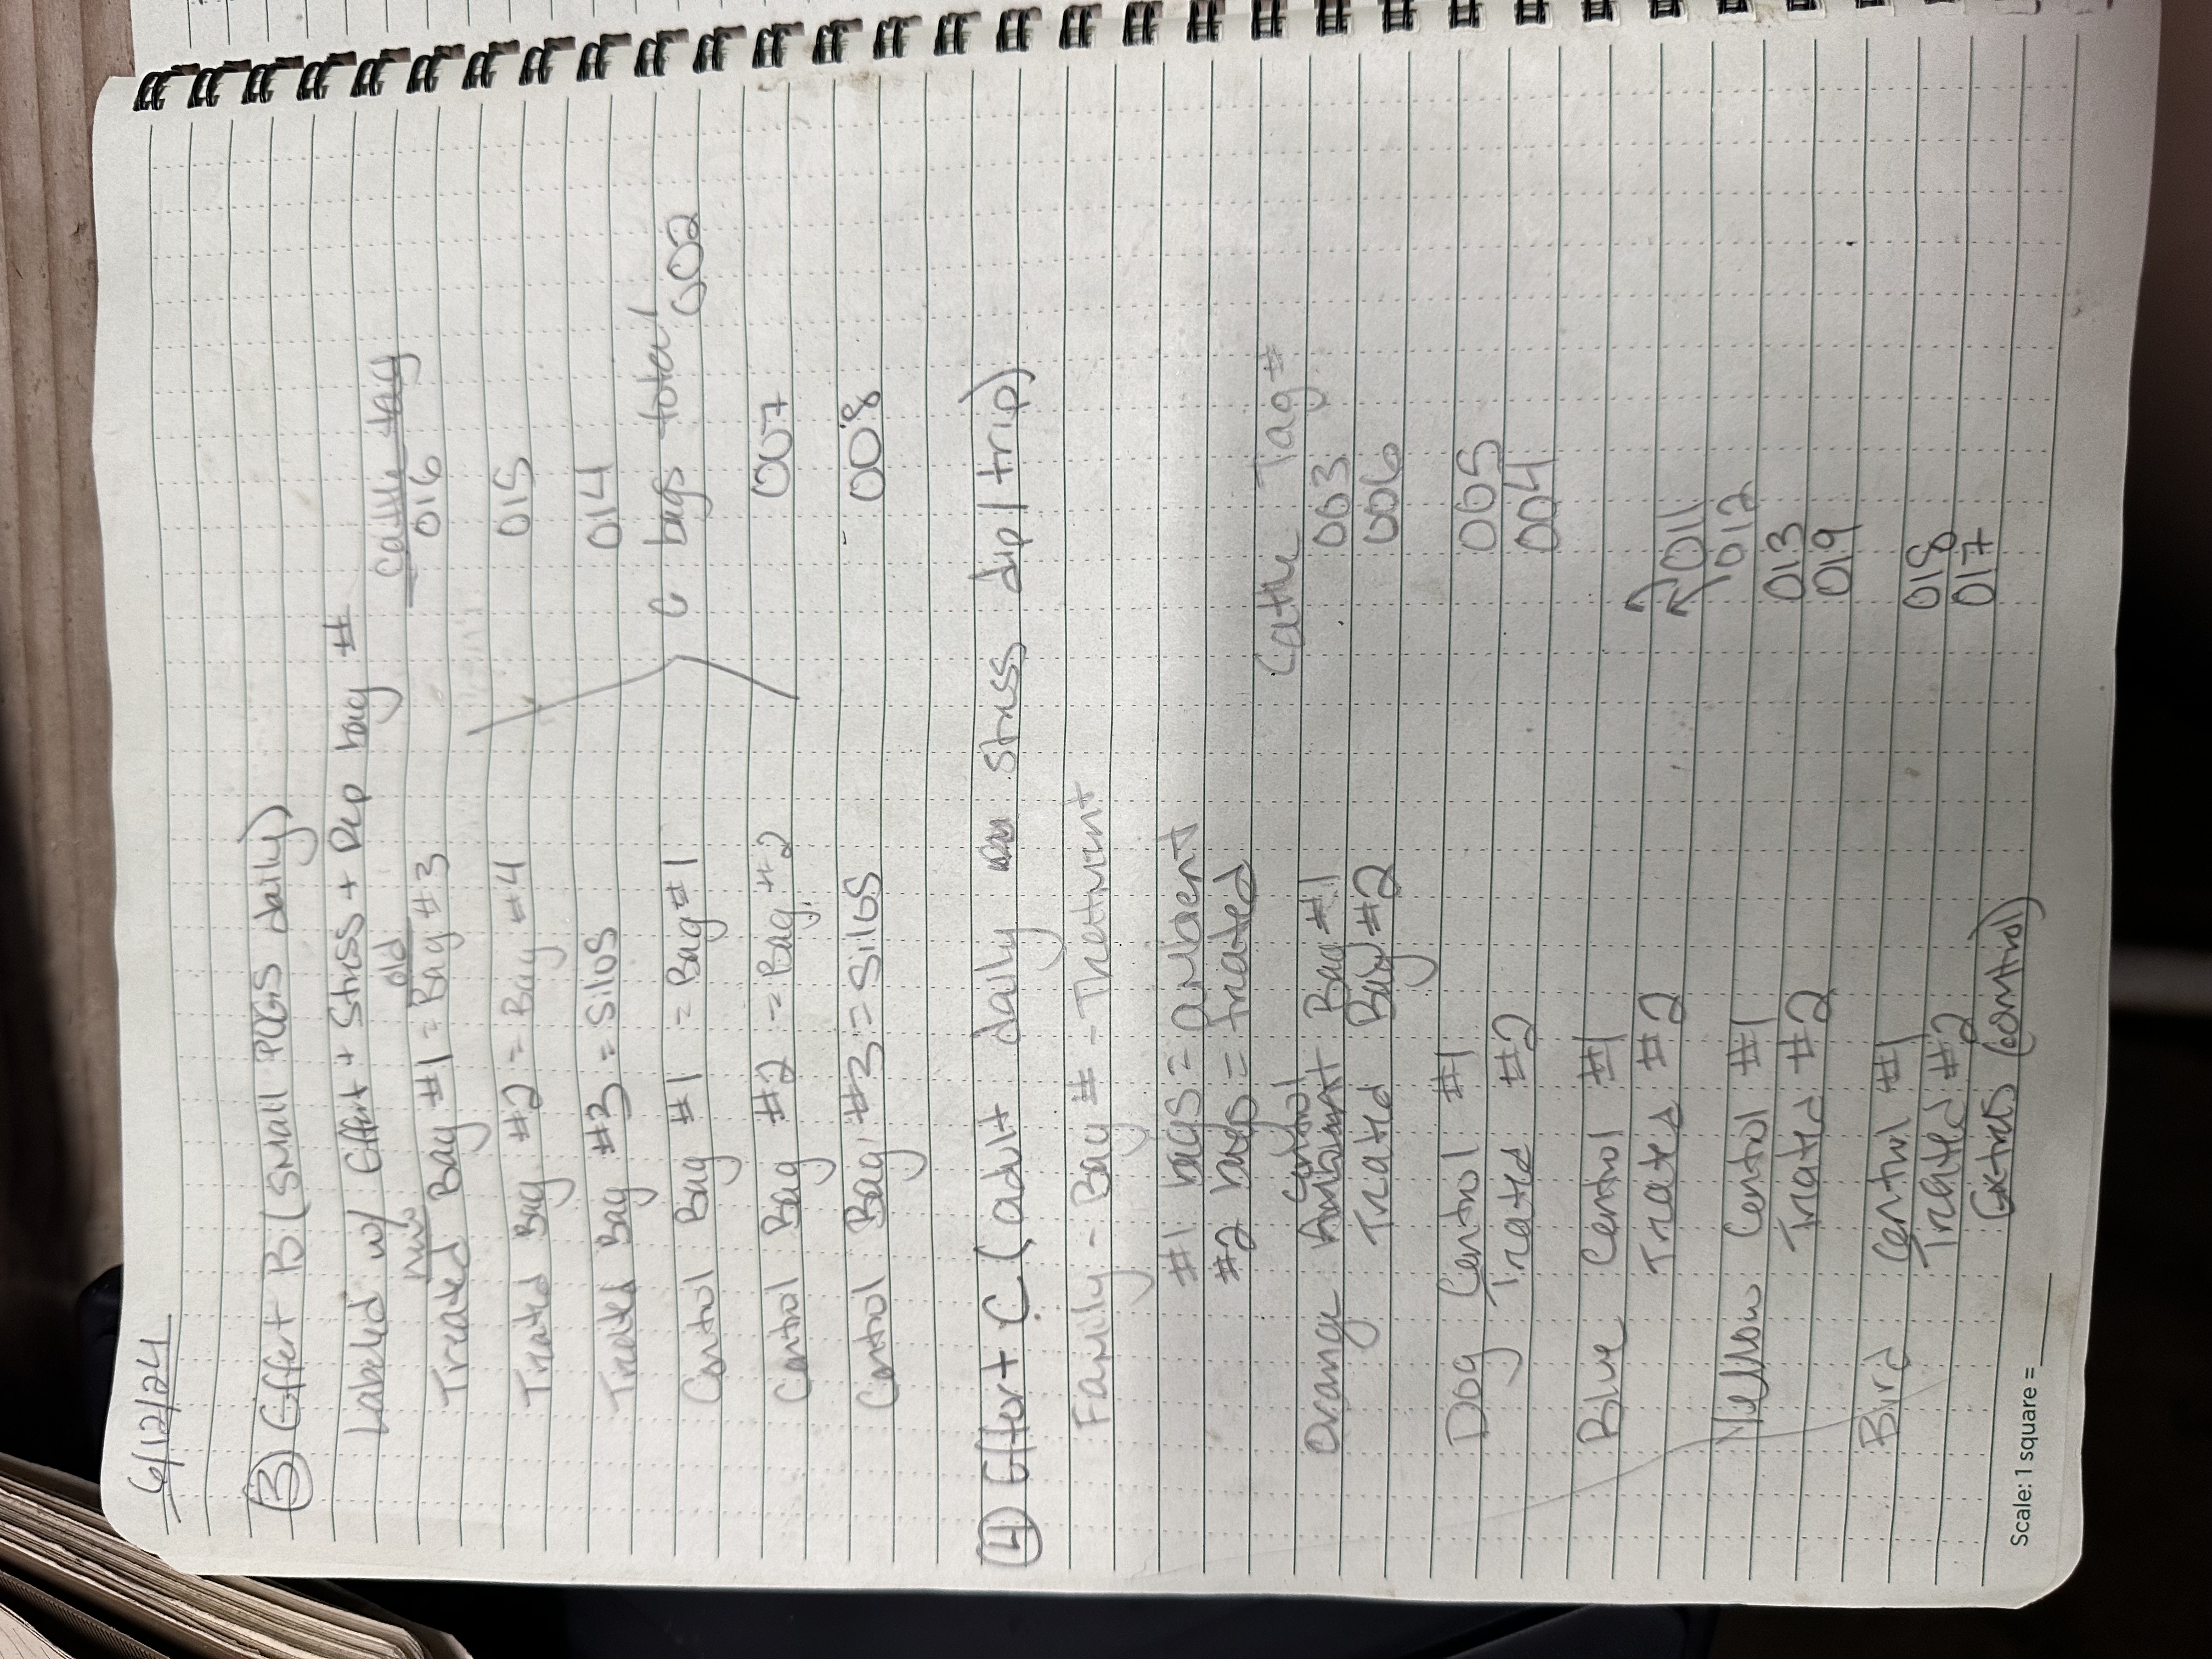 6/12/24
③ Effort B (small POGS daily)
Labeled w/ Effort + Stress + Dep bag #
new old cattle tag
Treated Bag #1 = Bag #3 016
Treated Bag #2 = Bag #4 015
Treated Bag #3 = Silos 014
6 bags total
Control Bag #1 = Bag #1 002
Control Bag #2 = Bag #2 007
Control Bag #3 = Silos 008
④ Effort C (adult daily stress dip/trip)
Family - Bag # - Treatment
#1 bags = ambient
#2 bags = treated
Cattle Tag #
control
Orange Ambient Bag #1 003
Treated Bag #2 006
Dog Control #1 005
Treated #2 004
Blue Control #1
Treated #2 011
012
Yellow Control #1 013
Treated #2 019
Bird Control #1 018
Treated #2 017
Extras (control)
Scale: 1 square =